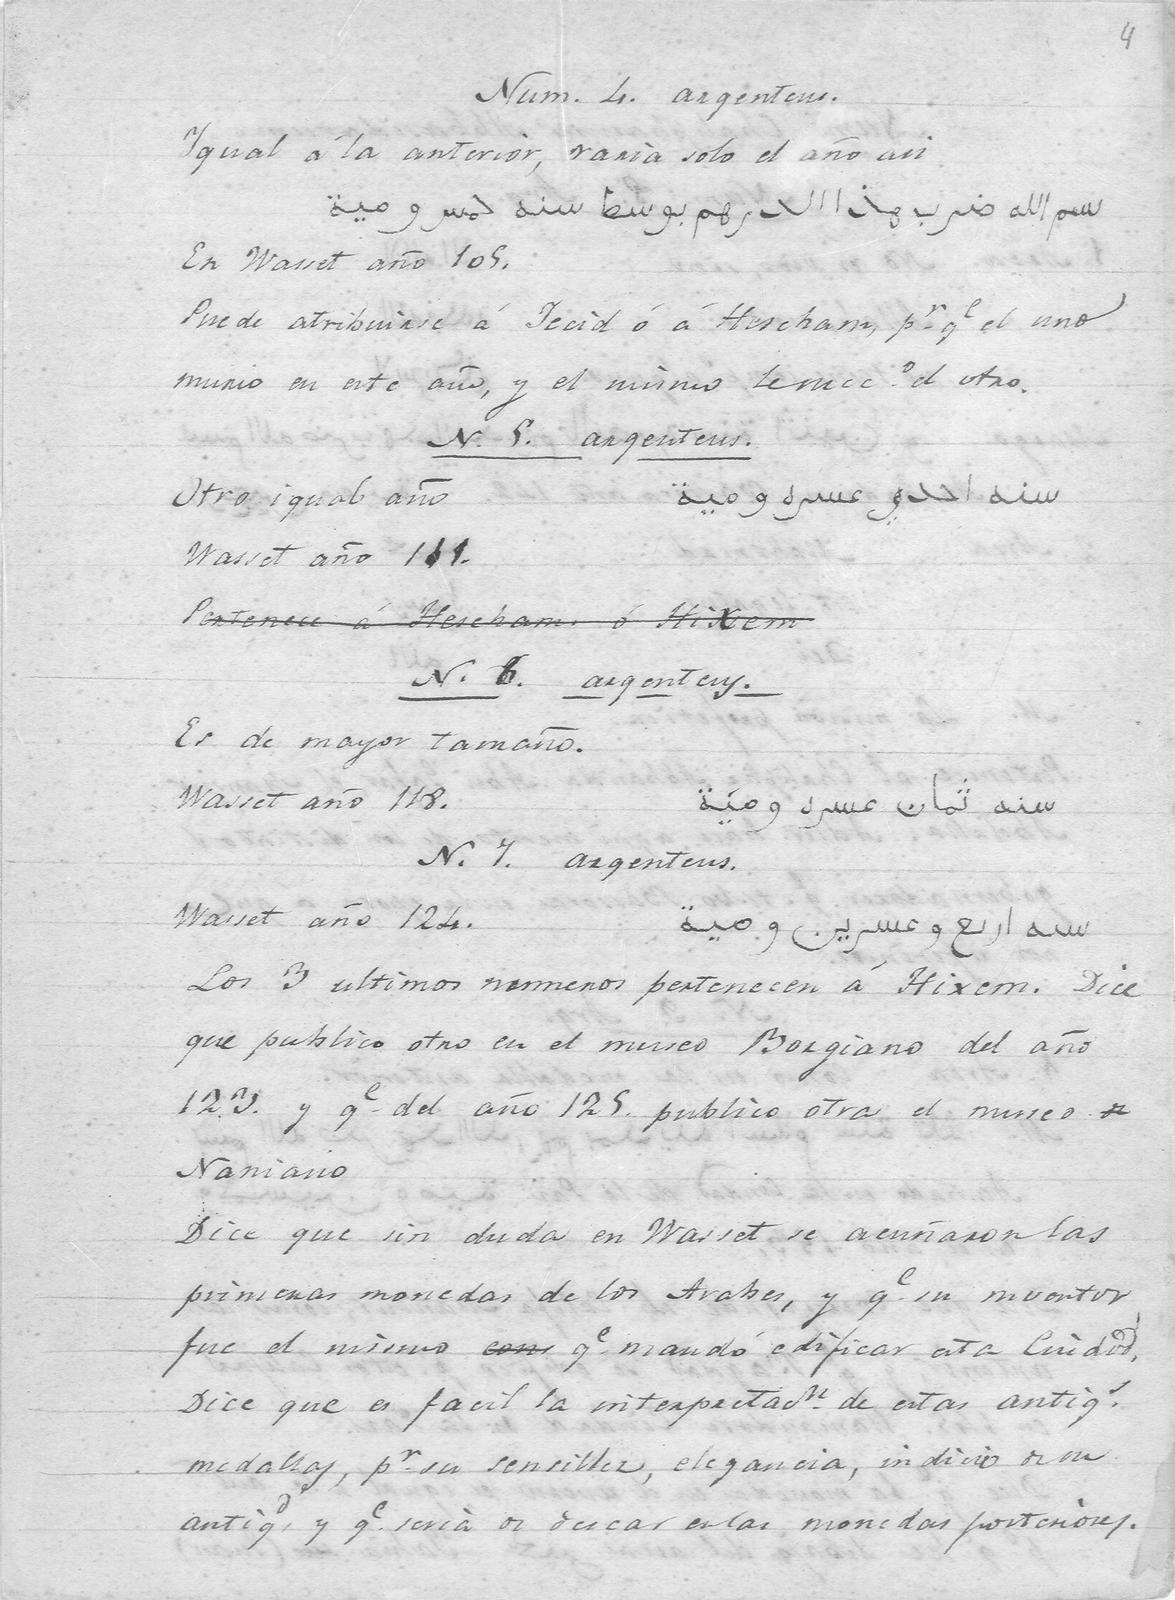 4
Num. 4. argenteus.
Igual á la anterior, varia solo el año asi
بسم الله ضرب هذا الدرهم بوسط سنه خمس و مية
En Wasset año 105.
Puede atribuirse á Jecid ó á Hescham, pr qe el uno
murio en este año, y el mismo le succo el otro.
N. 5. argenteus.
Otro igual año سنه احدي عسره و مية
Wasset año 111.
Pertenece á Hescham ó Hixem
N. 6. argenteus.
Es de mayor tamaño.
Wasset año 118. سنه ثمان عسره و مية
N. 7. argenteus.
Wasset año 124. سنه اربع و عسرين و مية
Los 3 ultimos numeros pertenecen á Hixem. Dice
que publico otro en el museo Borgiano del año
123. y qe del año 125. publico otra el museo
Naniano
Dice que sin duda en Wasset se acuñaron las
primeras monedas de los Arabes, y qe su inventor
fue el mismo qe mandó edificar esta Ciudad,
Dice que es facil la interpretacn de estas antigs
medallas, pr su sensillez, elegancia, indicio de su
antigd, y qe seria de desear en las monedas posteriores.